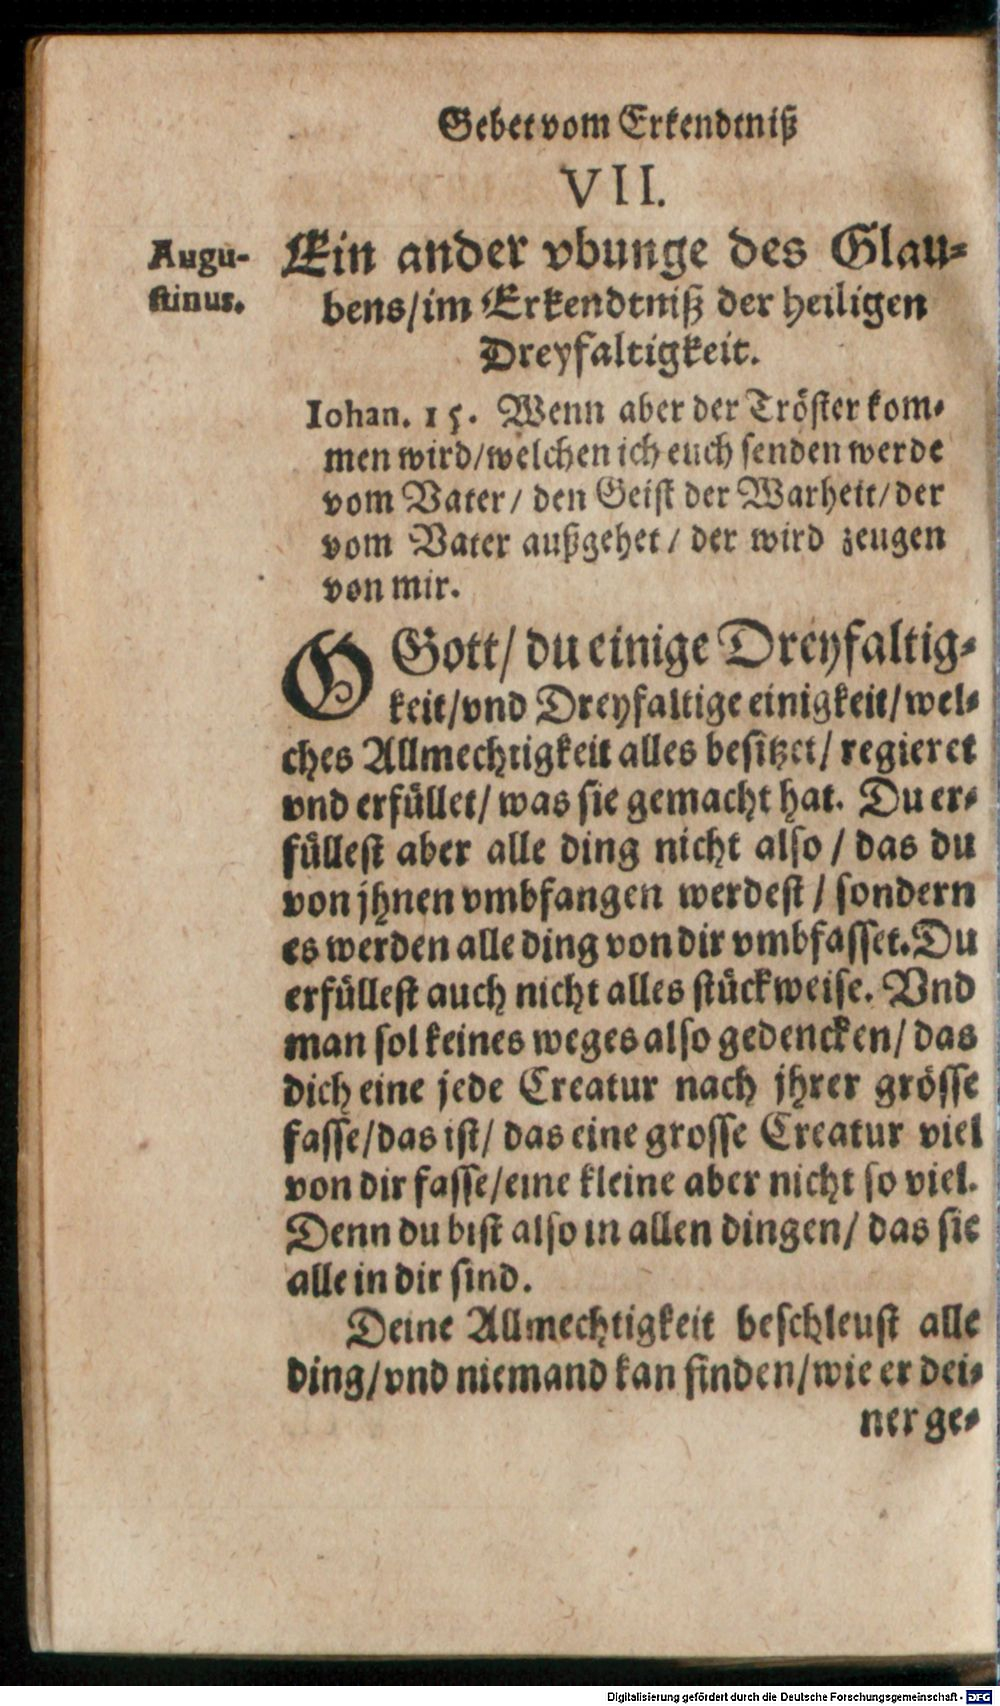 Gebet vom Erkendtniß
VII.
Augu-
stinus.
Ein ander vbunge des Glau-
bens/im Erkendtniß der heiligen
Dreyfaltigkeit.
Iohan. 15. Wenn aber der Tröster kom-
men wird/welchen ich euch senden werde
vom Vater/ den Geist der Warheit/der
vom Vater außgehet/ der wird zeugen
von mir.
O Gott/ du einige Dreyfaltig-
keit/vnd Dreyfaltige einigkeit/wel-
ches Allmechtigkeit alles besitzet/ regieret
vnd erfüllet/ was sie gemacht hat. Du er-
füllest aber alle ding nicht also/ das du
von jhnen vmbfangen werdest/ sondern
es werden alle ding von dir vmbfasset. Du
erfüllest auch nicht alles stückweise. Vnd
man sol keines weges also gedencken/ das
dich eine jede Creatur nach jhrer grösse
fasse/das ist/ das eine grosse Creatur viel
von dir fasse/eine kleine aber nicht so viel.
Denn du bist also in allen dingen/ das sie
alle in dir sind.
Deine Allmechtigkeit beschleust alle
ding/vnd niemand kan finden/wie er dei-
ner ge-
Digitalisierung gefördert durch die Deutsche Forschungsgemeinschaft - DFG